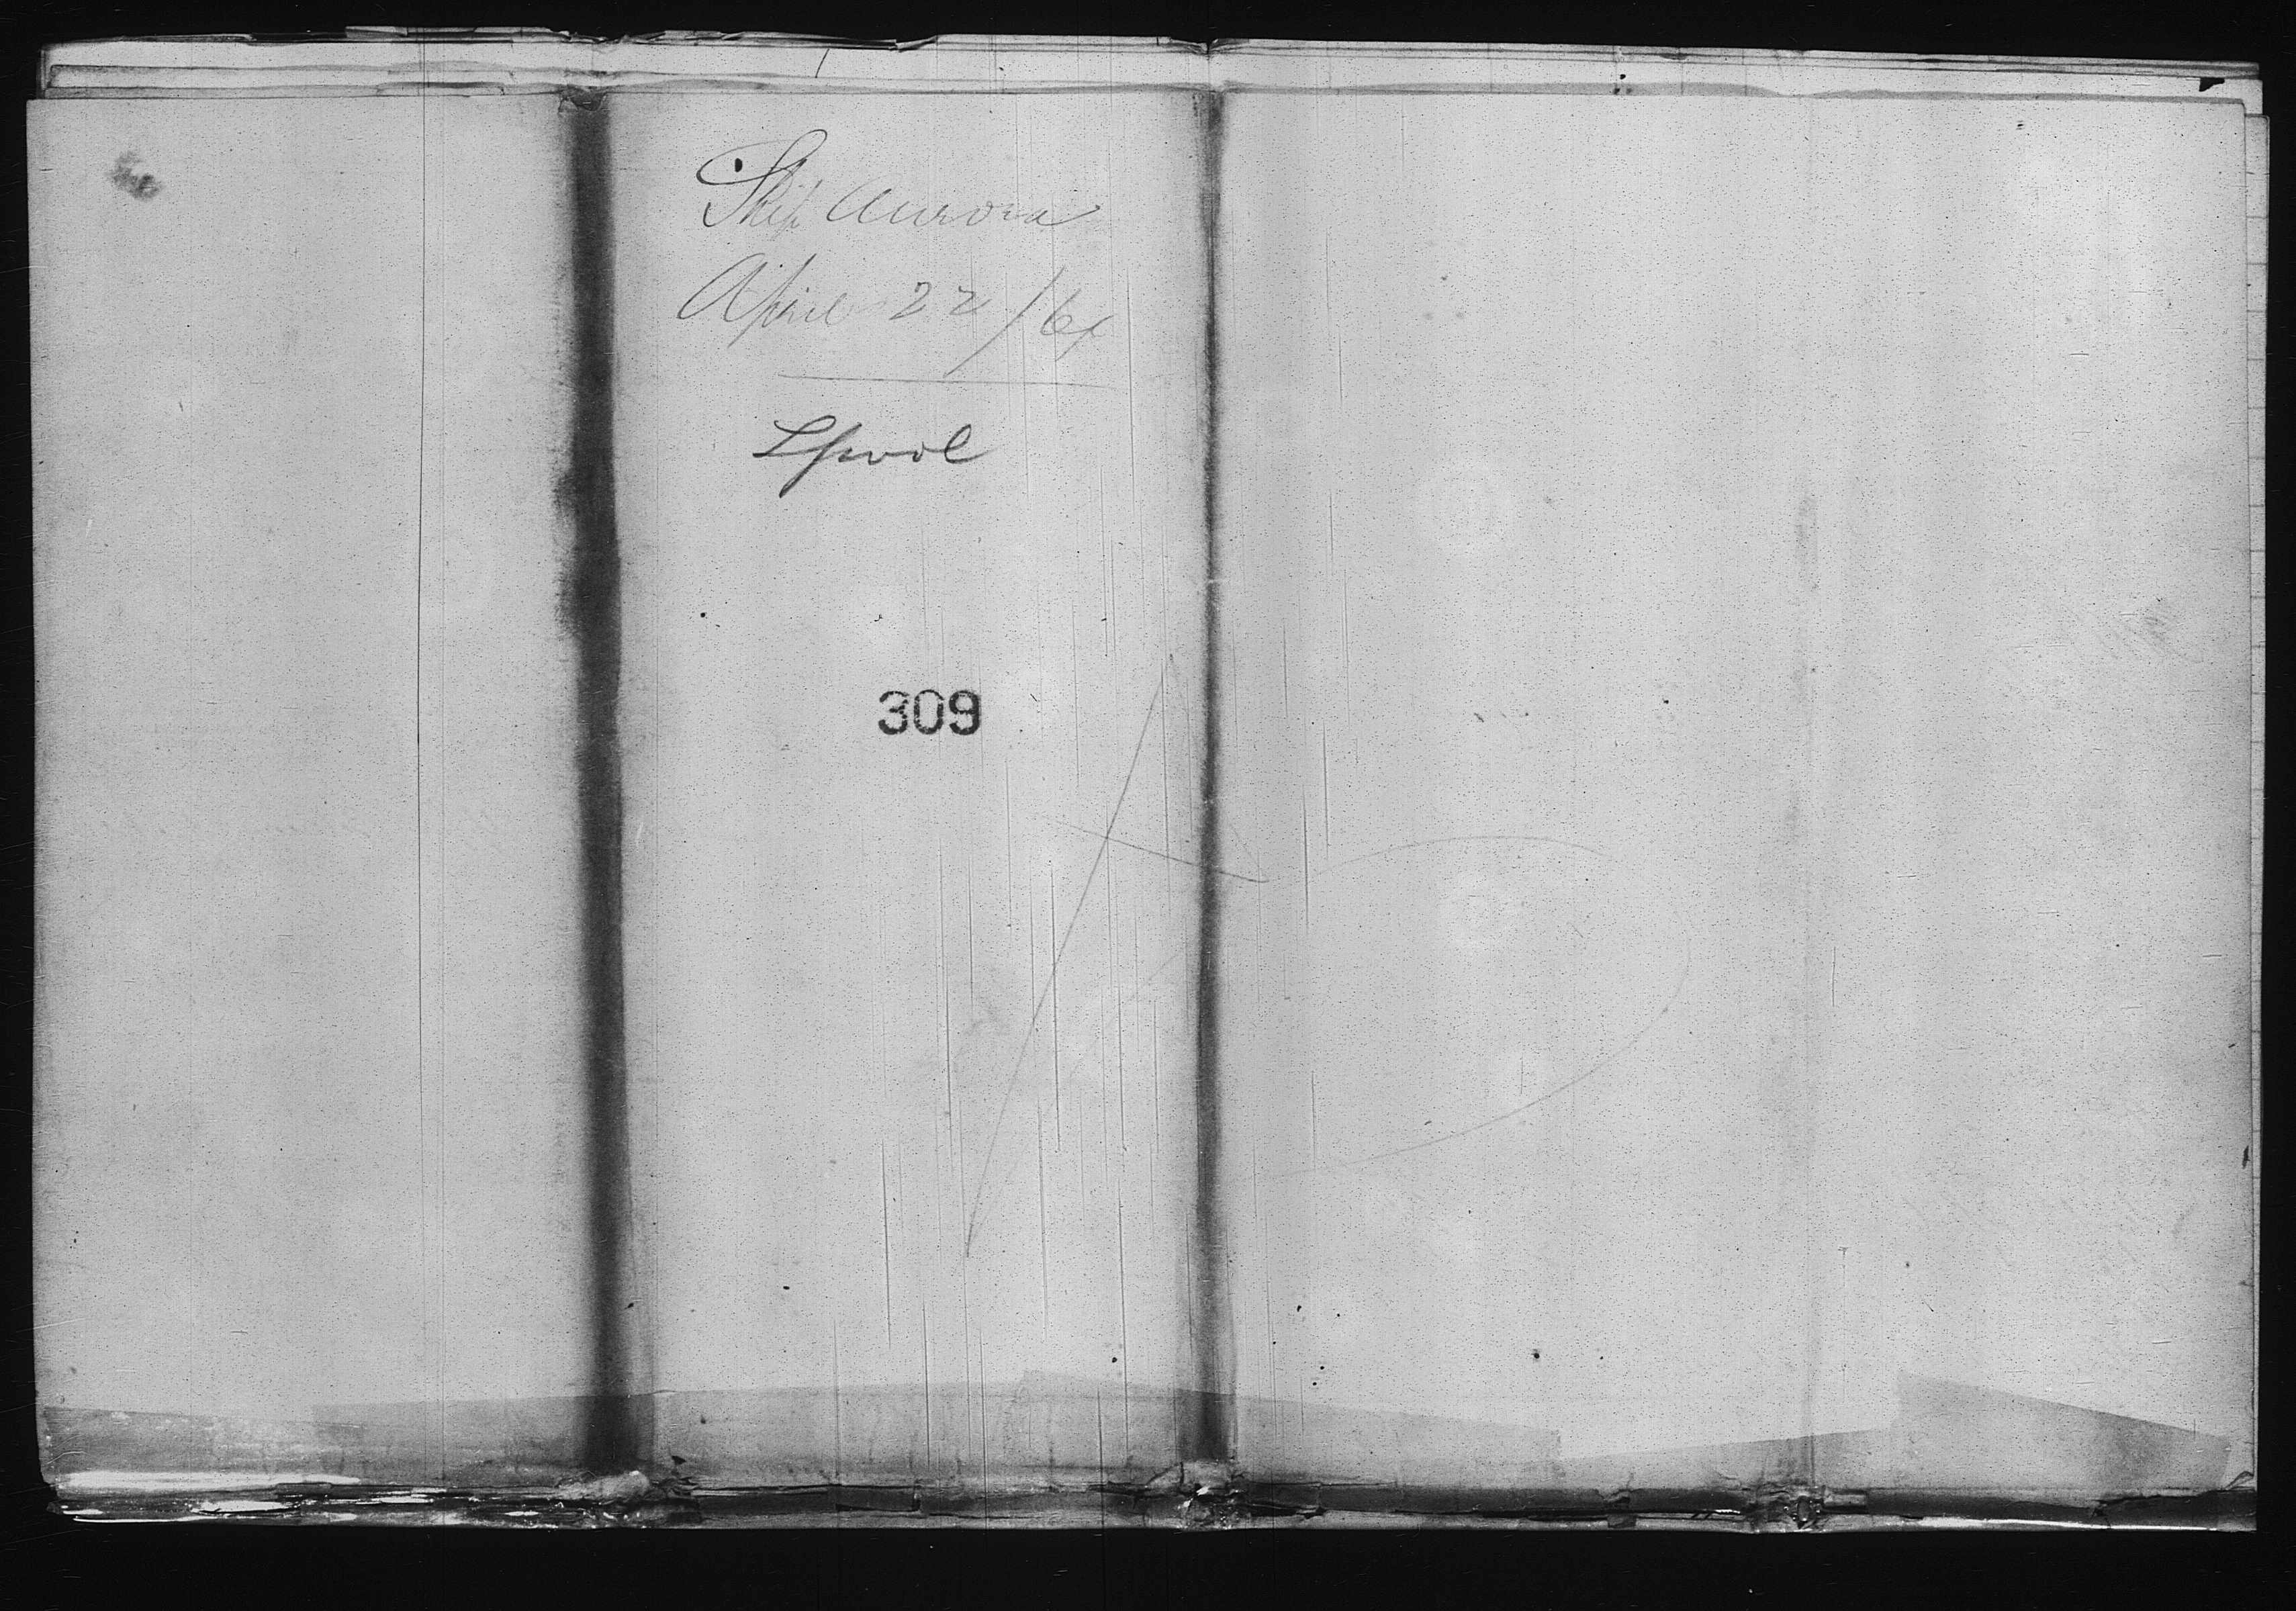 Ship Aurora
April 22/64
Lpool
309